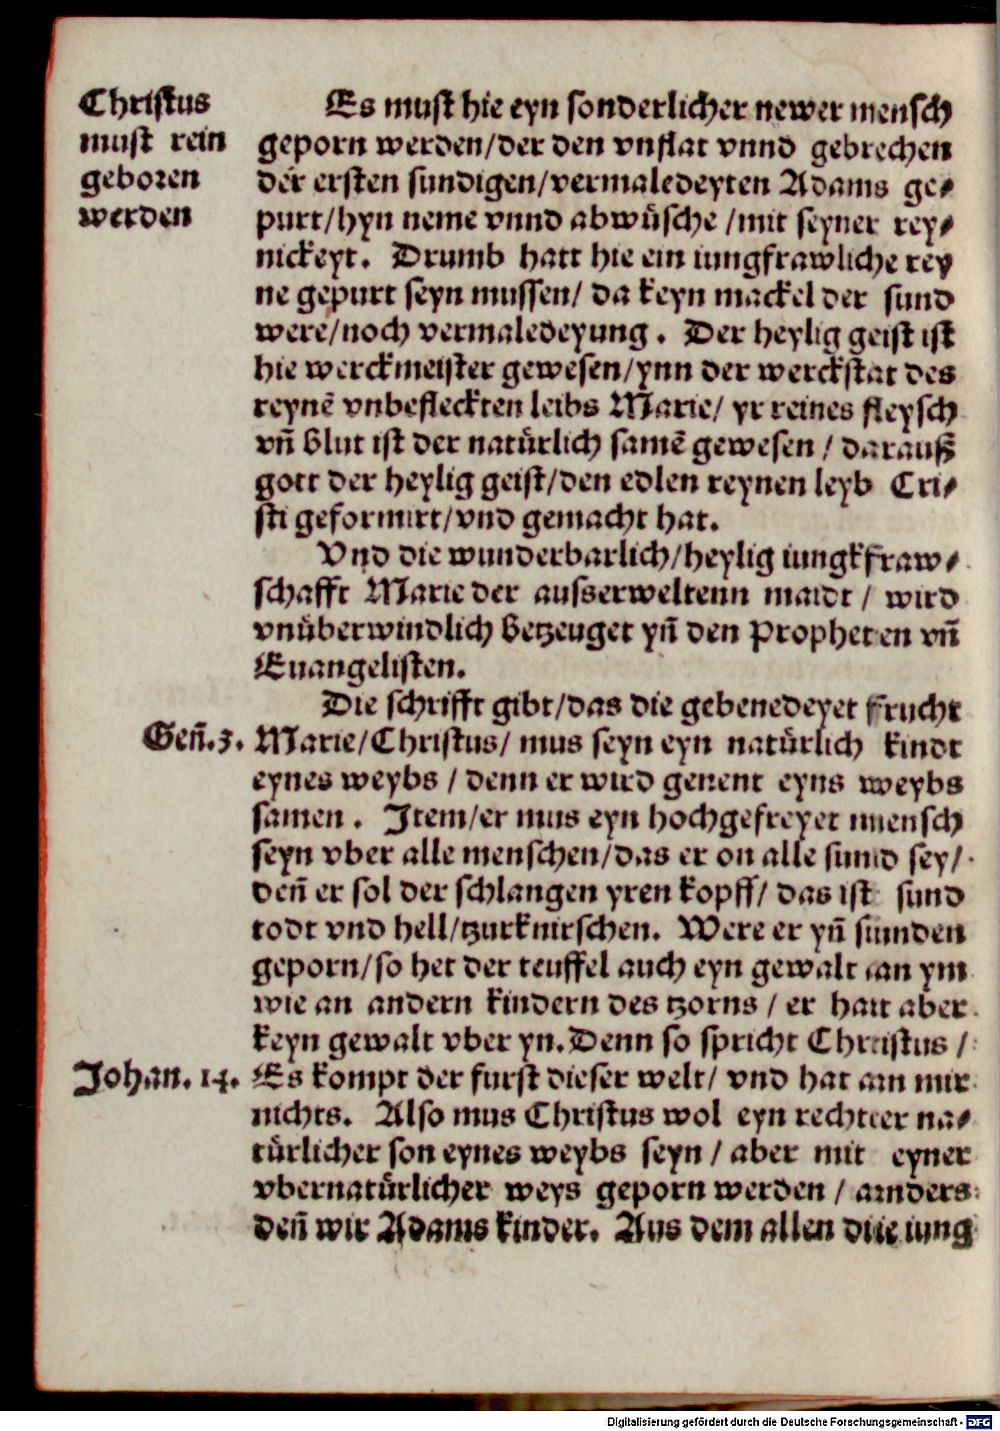 Christus
must rein
geboren
werden
Es must hie eyn sonderlicher newer mensch
geporn werden/der den vnflat vnnd gebrechen
der ersten sundigen/vermaledeyten Adams ge⸗
purt/hyn neme vnnd abwüsche /mit seyner rey⸗
nickeyt. Drumb hatt hie ein iungfrawliche rey
ne gepurt seyn mussen/ da keyn mackel der sund
were/noch vermaledeyung . Der heylig geist ist
hie werckmeister gewesen/ynn der werckstat des
reynē vnbefleckten leibs Marie/ yr reines fleysch
vñ blut ist der natürlich samē gewesen / darauß
gott der heylig geist/den edlen reynen leyb Cri⸗
sti geformirt/vnd gemacht hat.
Vnd die wunderbarlich/heylig iungkfraw⸗
schafft Marie der ausserweltenn maidt / wird
vnüberwindlich betzeuget yñ den Propheten vñ
Euangelisten.
Die schrifft gibt/das die gebenedeyet frucht
Geñ.3. Marie/Christus/ mus seyn eyn natürlich kindt
eynes weybs / denn er wird genent eyns weybs
samen . Item/er mus eyn hochgefreyet mensch
seyn vber alle menschen/das er on alle sund sey/
deñ er sol der schlangen yren kopff/ das ist sund
todt vnd hell/tzurknirschen. Were er yñ sunden
geporn/so het der teuffel auch eyn gewalt an ym
wie an andern kindern des tzorns / er hatt aber
keyn gewalt vber yn. Denn so spricht Christus /
Johan. 14. Es kompt der furst dieser welt/ vnd hat am mir
nichts. Also mus Christus wol eyn rechter na⸗
türlicher son eynes weybs seyn / aber mit eyner
vbernatürlicher weys geporn werden / anders
deñ wir Adams kinder. Aus dem allen die iung
Digitalisierung gefördert durch die Deutsche Forschungsgemeinschaft - DFG